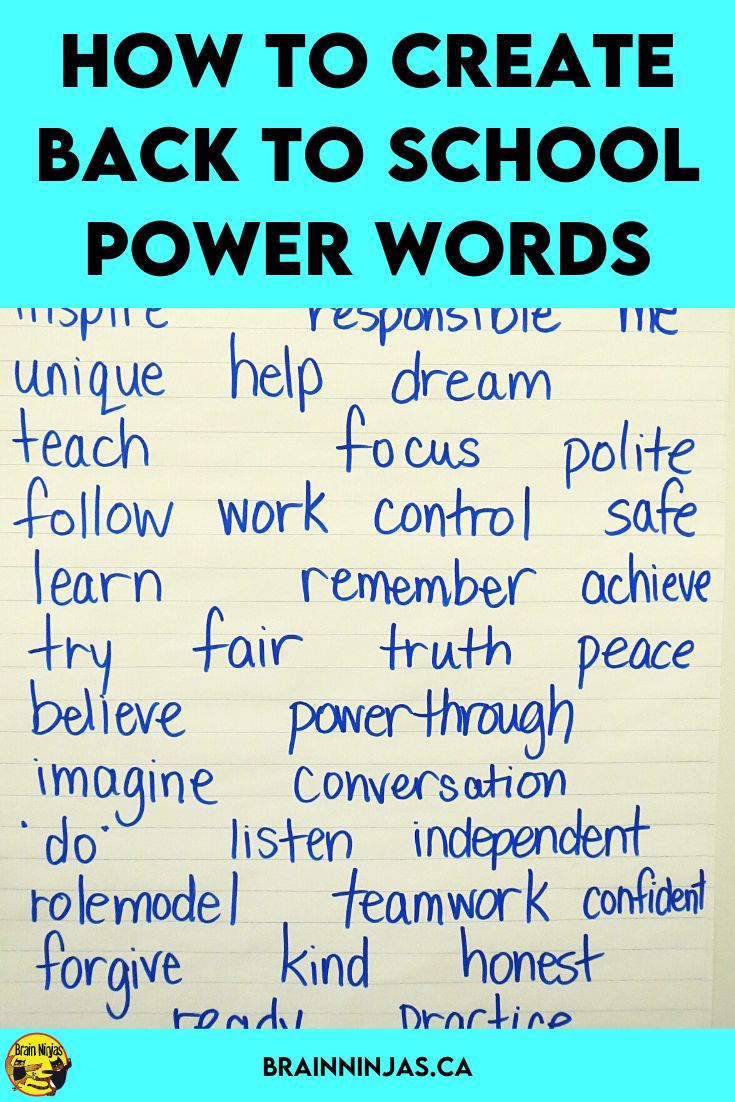 HOW TO CREATE
BACK TO SCHOOL
POWER WORDS
inspire responsible me
unique help dream
teach focus polite
follow work control safe
learn remember achieve
try fair truth peace
believe powerthrough
imagine conversation
"do" listen independent
rolemodel teamwork confident
forgive kind honest
ready practice
Brain Ninjas
BRAINNINJAS.CA